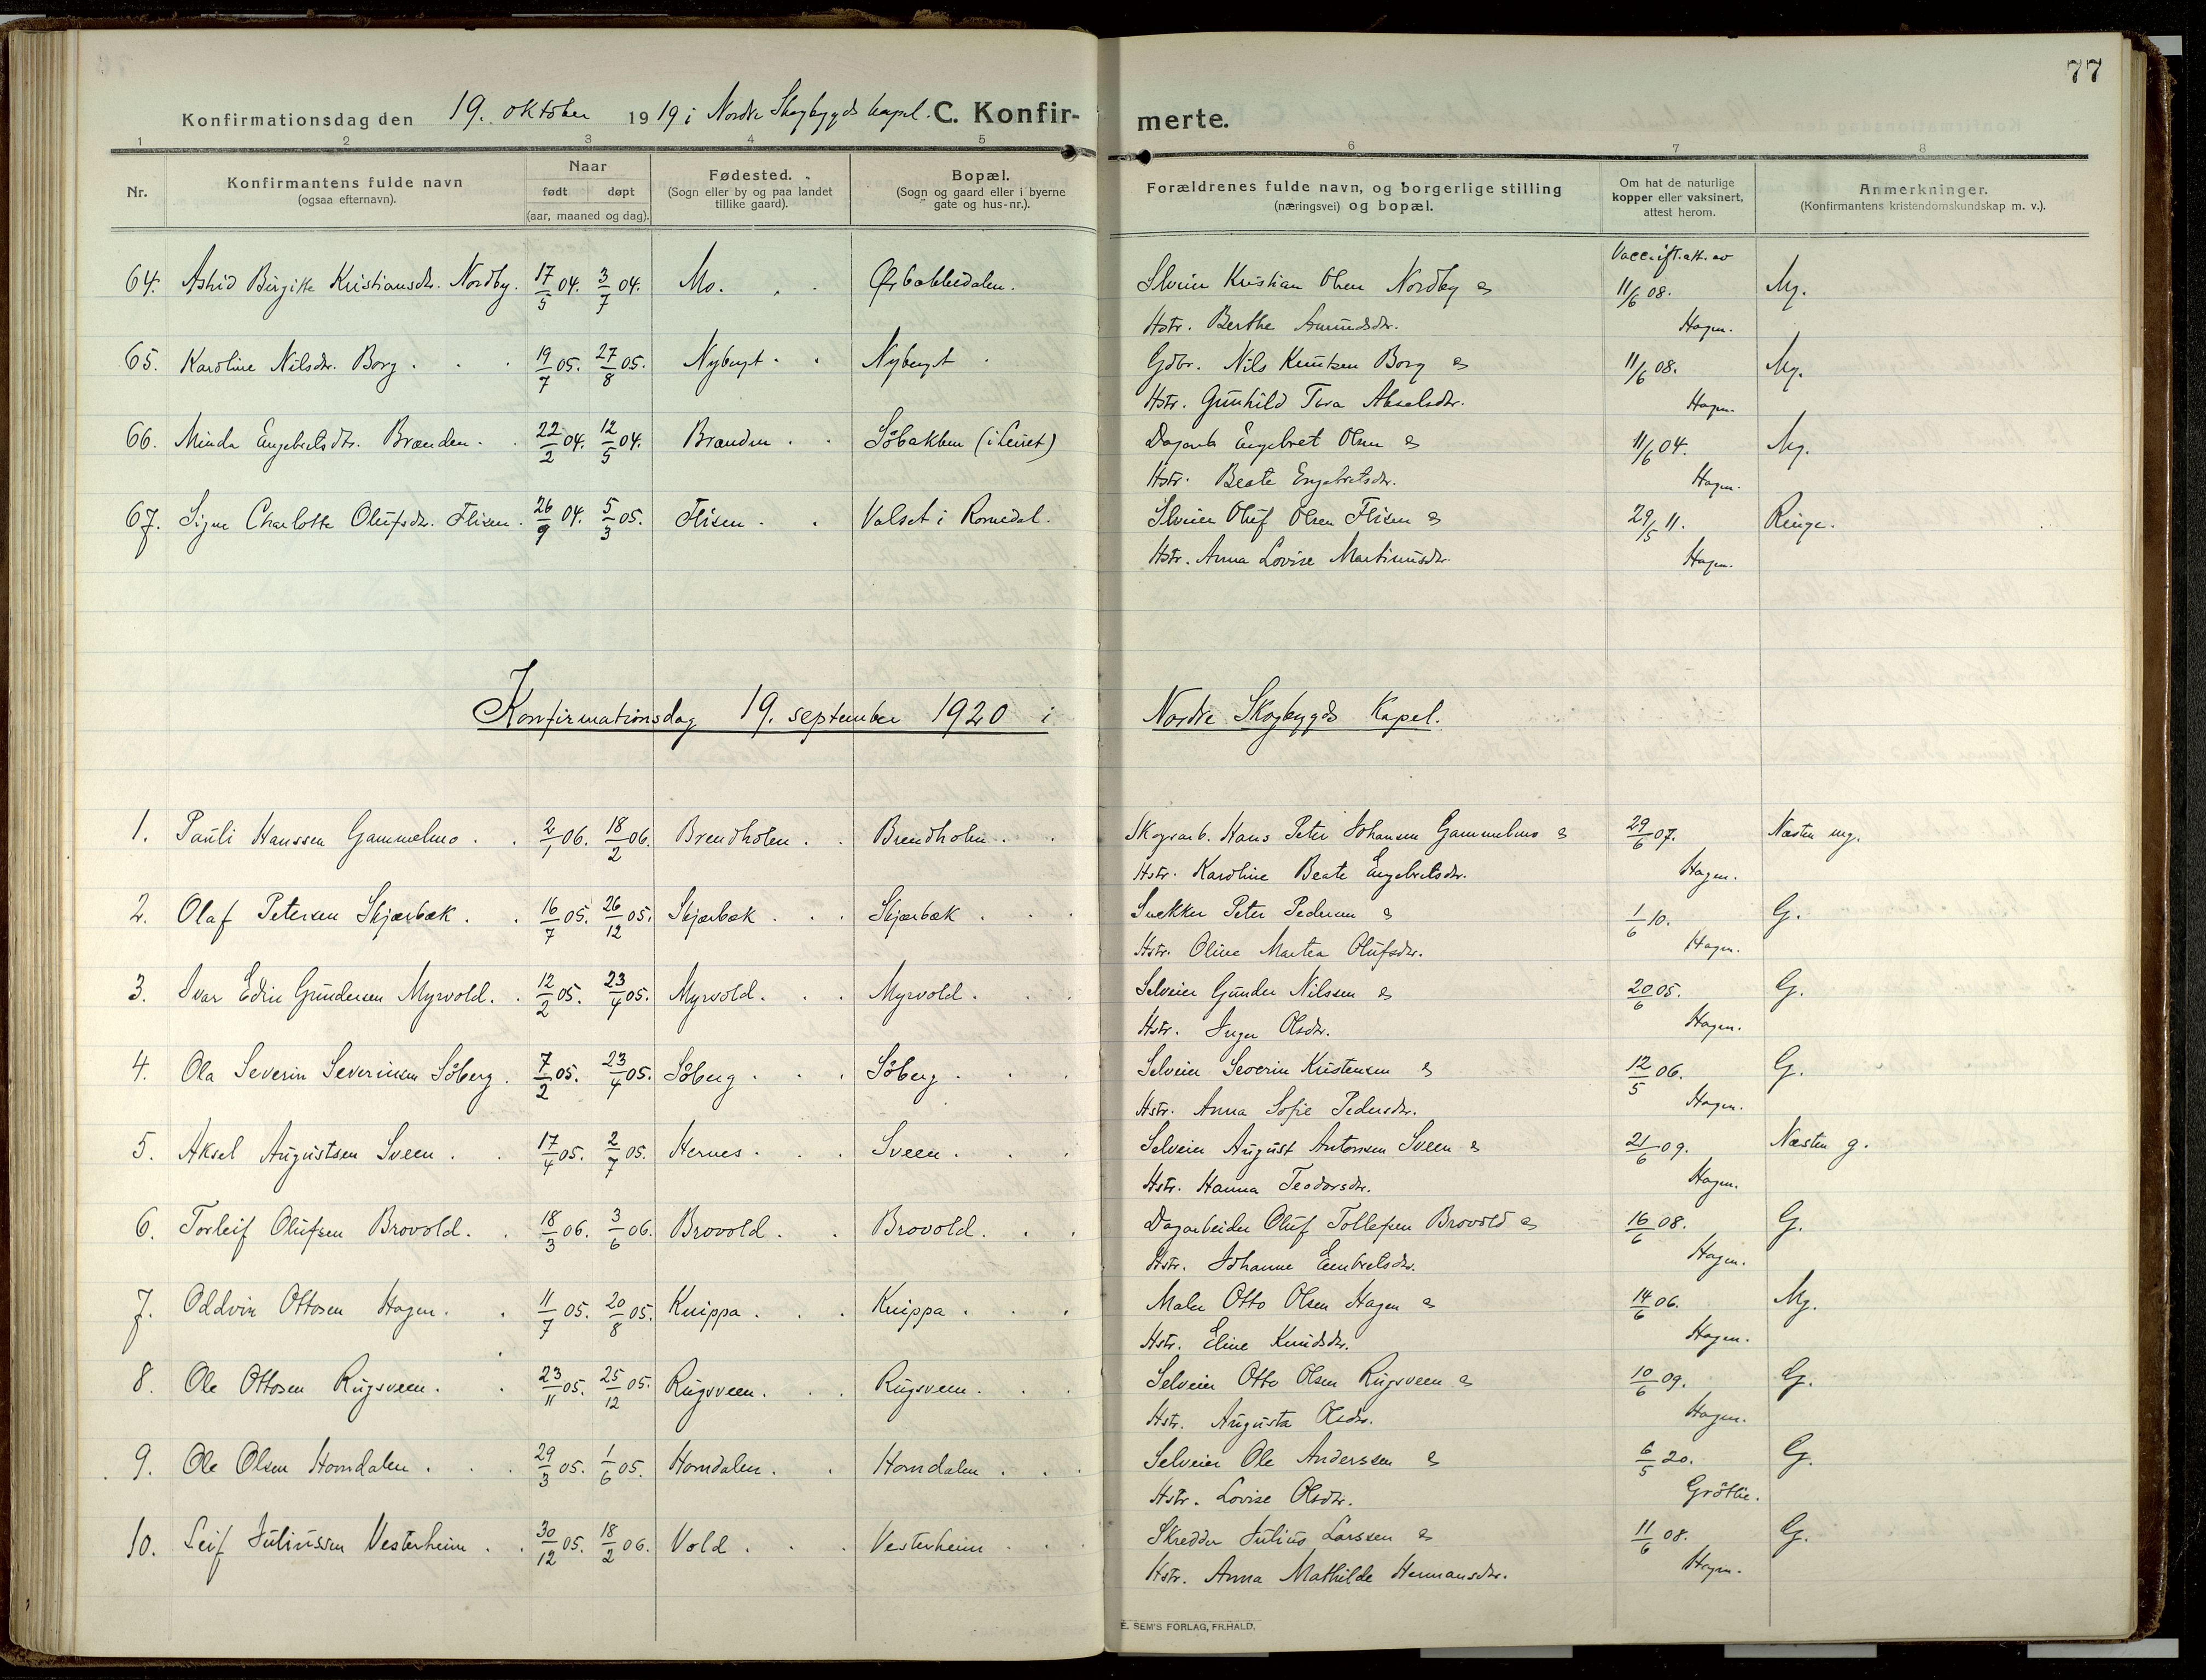 77
Konfirmationsdag den 19. oktober 1919 i Nordre Skogbygds kapel. C. Konfirmerte.
1 2 3 4 5 6 7 8
Nr. Konfirmantens fulde navn (ogsaa efternavn). Naar født døpt (aar, maaned og dag). Fødested. (Sogn eller by og paa landet tillike gaard). Bopæl. (Sogn og gaard eller i byerne gate og hus-nr.). Forældrenes fulde navn, og borgerlige stilling (næringsvei) og bopæl. Om hat de naturlige kopper eller vaksinert, attest herom. Anmerkninger. (Konfirmantens kristendomskundskap m. v.).
Vacc. ift. att. av
64. Astrid Birgitte Kristiansdtr. Nordby. 17/5 04. 3/7 04. Mo. Ørbækkedalen. Selveier Kristian Olsen Nordby & 11/6 08. Mg.
Hstr. Berthe Amundsdtr. Hagen.
65. Karoline Nilsdtr. Borg. 19/7 05. 27/8 05. Nybergt Nybergt Gdbr. Nils Knutsen Borg & 11/6 08. Mg.
Hstr. Gunhild Tora Akselsdtr. Hagen.
66. Minda Engebretsdtr. Brænden. 22/2 04. 12/5 04. Brænden Søbakken (i Leiret) Dagarb. Engebret Olsen & 11/6 04. Mg.
Hstr. Beate Engebretsdtr. Hagen.
67. Signe Charlotte Olufsdtr. Flisen. 26/9 04. 5/3 05. Flisen. Valset i Romedal. Selveier Oluf Olsen Flisen & 29/5 11. Ringe.
Hstr. Anna Lovise Martinusdtr. Hagen.
Konfirmationsdag 19. september 1920 i Nordre Skogbygds Kapel.
1. Pauli Hanssen Gammelmo. 2/1 06. 18/2 06. Brendholen. Brendholen. Skogsarb. Hans Peter Johansen Gammelmo & 29/6 07. Næsten mg.
Hstr. Karoline Beate Engebretsdtr. Hagen.
2. Olaf Petersen Skjærbæk. 16/7 05. 26/12 05. Skjærbæk. Skjærbæk. Snekker Peter Pedersen & 1/6 10. G.
Hstr. Oline Martea Olufsdtr. Hagen.
3. Ivar Edin Gundersen Myrvold. 12/2 05. 23/4 05. Myrvold. Myrvold. Selveier Gunder Nilssen & 20/6 05. G.
Hstr. Inga Olsdtr. Hagen.
4. Ola Severin Severinsen Söberg. 7/2 05. 23/4 05. Söberg. Söberg. Selveier Severin Kristensen & 12/5 06. G.
Hstr. Anna Sofie Pedersdtr. Hagen.
5. Aksel Augustsen Sveen. 17/4 05. 2/7 05. Hernes. Sveen. Selveier August Antonsen Sveen & 21/6 09. Næsten g.
Hstr. Hanna Teodorsdtr. Hagen.
6. Torleif Olufsen Brovold. 18/3 06. 3/6 06. Brovold. Brovold. Dagarbeider Oluf Tollefsen Brovold & 16/6 08. G.
Hstr. Johanne Embretsdtr. Hagen.
7. Oddvin Ottosen Hagen. 11/7 05. 20/8 05. Knippa. Knippa. Maler Otto Olsen Hagen & 14/6 06. Mg.
Hstr. Eline Knudsdtr. Hagen.
8. Ole Ottosen Rugsveen. 23/11 05. 25/12 05. Rugsveen. Rugsveen. Selveier Otto Olsen Rugsveen & 10/6 09. G.
Hstr. Augusta Olsdtr. Hagen.
9. Ole Olsen Horndalen. 29/3 05. 1/6 05. Horndalen. Horndalen. Selveier Ole Anderssen & 6/5 20. G.
Hstr. Lovise Olsdtr. Gröttie.
10. Leif Juliussen Vesterheim. 30/12 05. 18/2 06. Vold. Vesterheim Skredder Julius Larssen & 11/6 08. G.
Hstr. Anna Mathilde Hermansdtr. Hagen.
E. SEM'S FORLAG, FR.HALD.